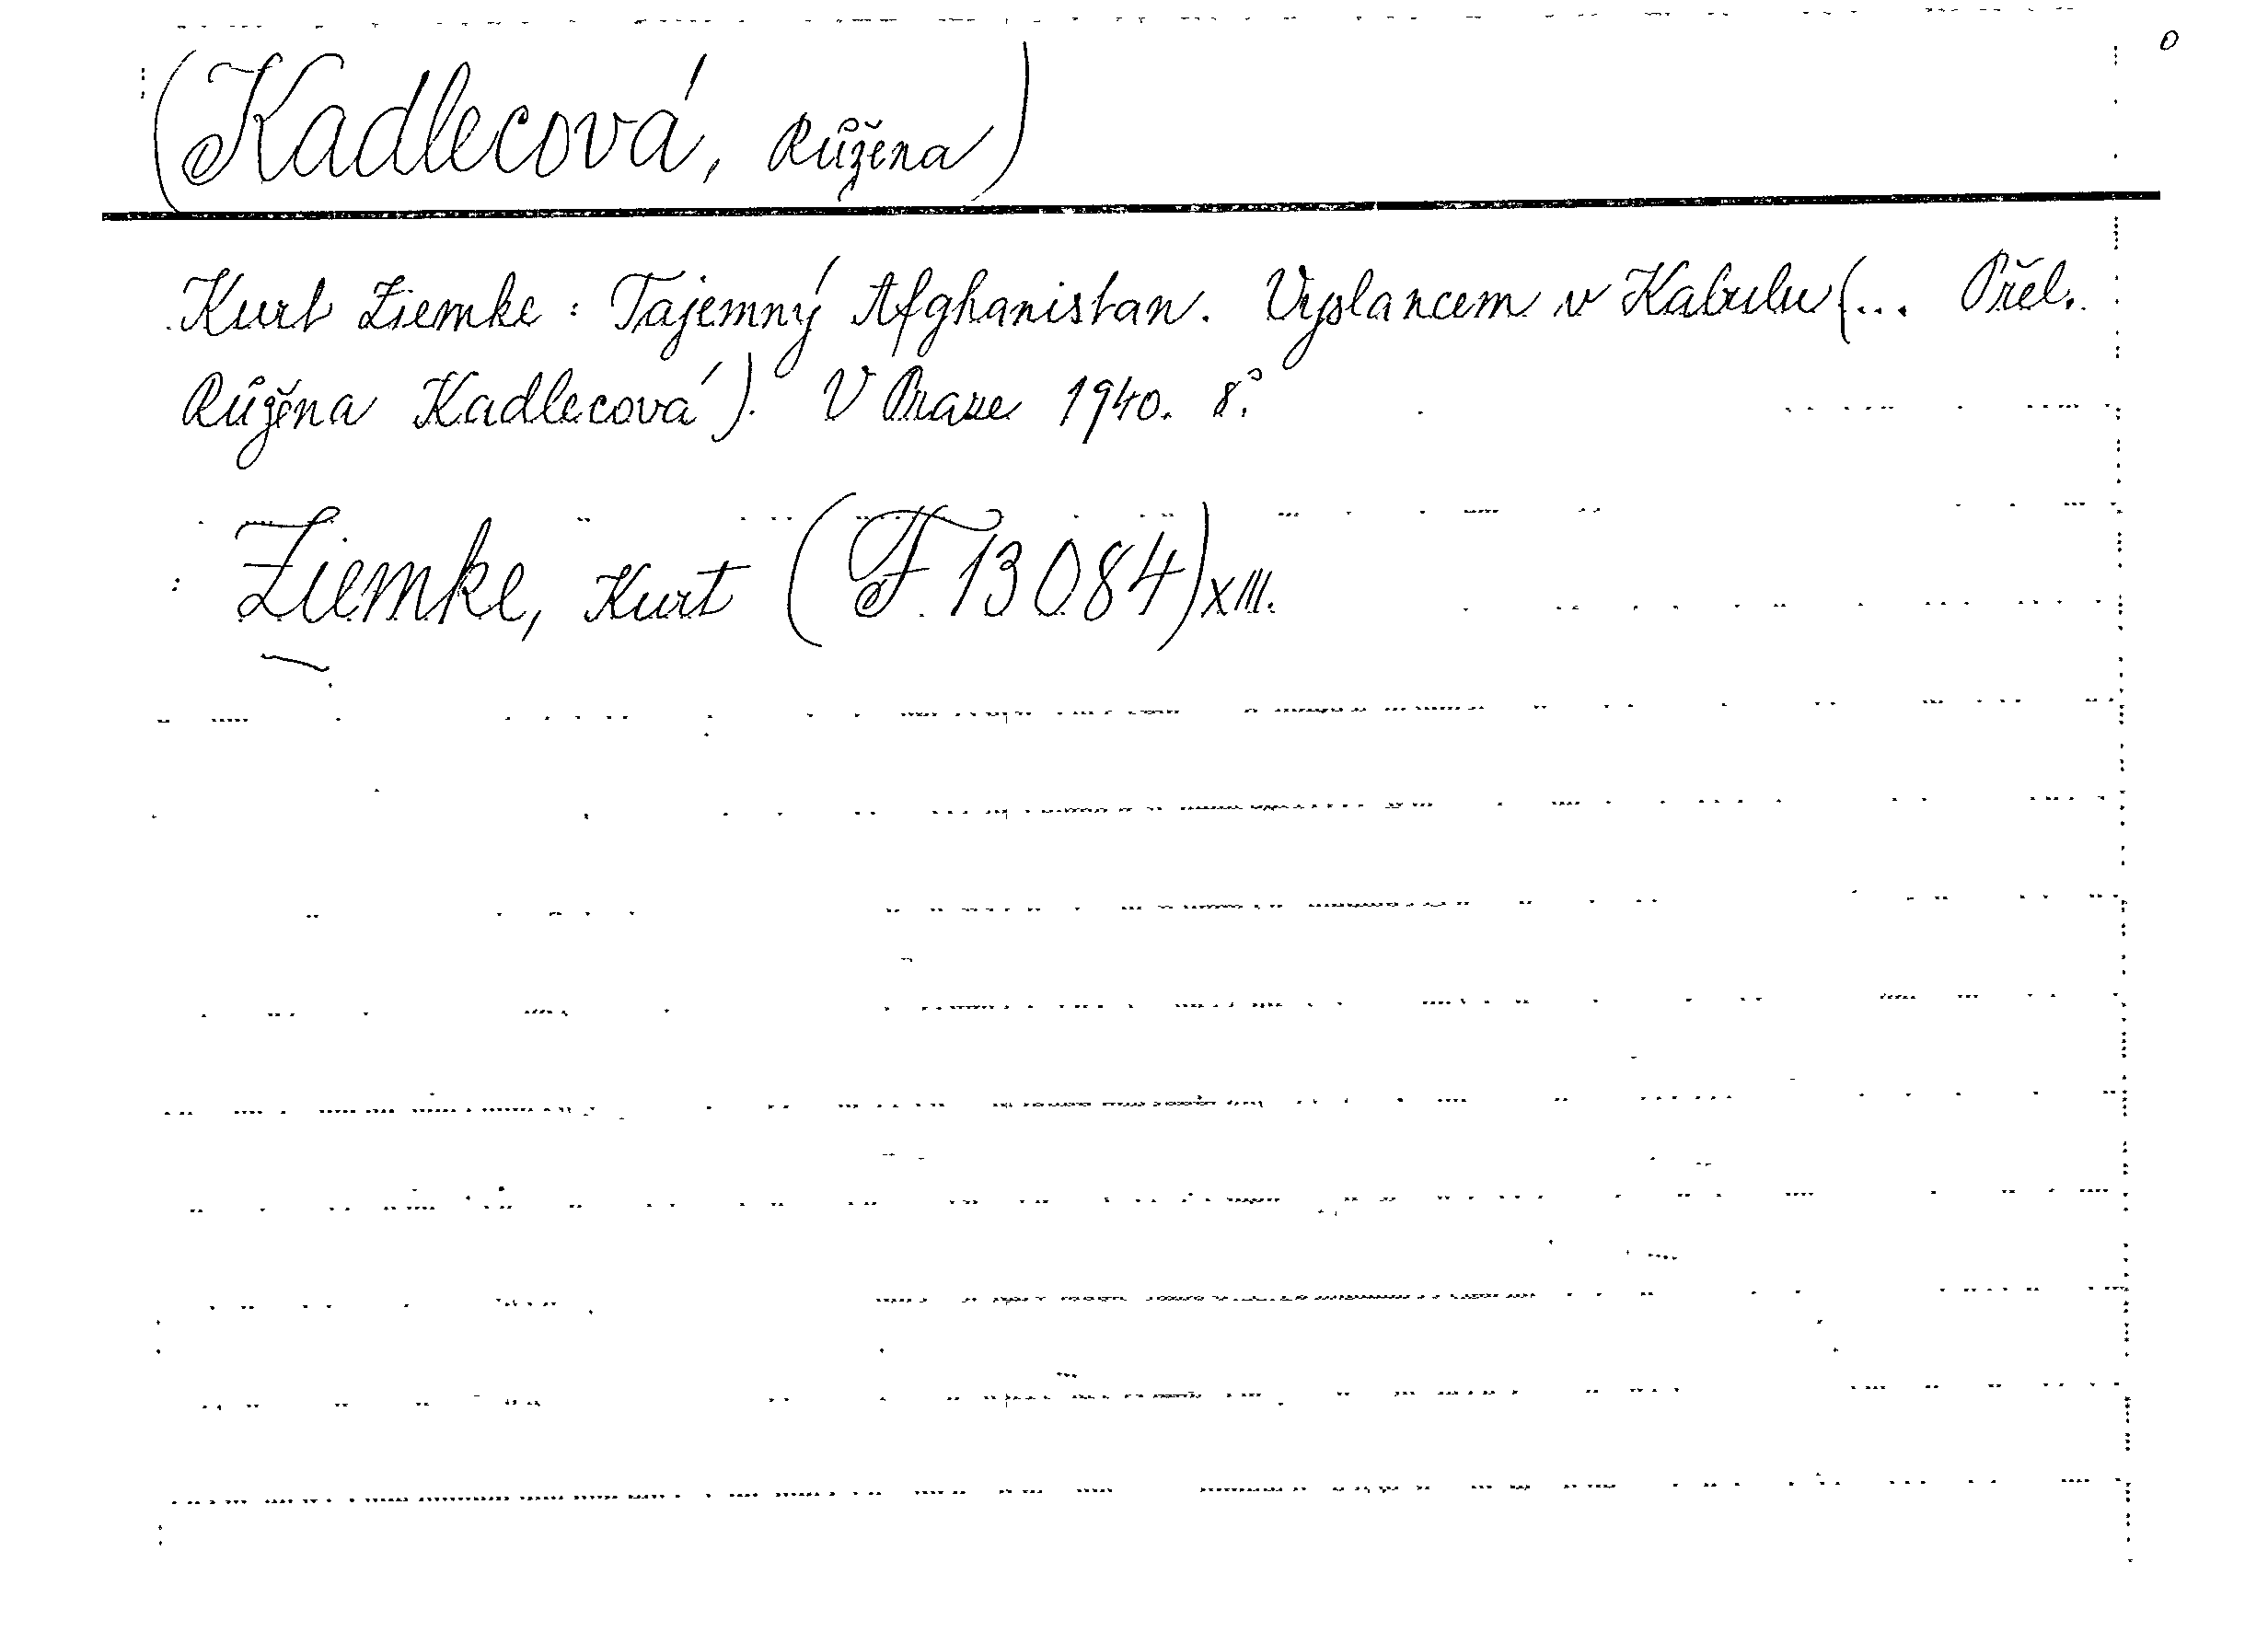 0
(Kadlecová, Růžena)
Kurt Ziemke: Tajemný Afghanistan. Vyslancem v Kabulu (... Přel.
Růžena Kadlecová). V Praze 1940. 8°.
Ziemke, Kurt (F 13084) XIII.